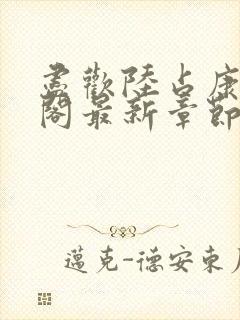 尽歡陸占康
閣最新章節
邁克-德安東尼